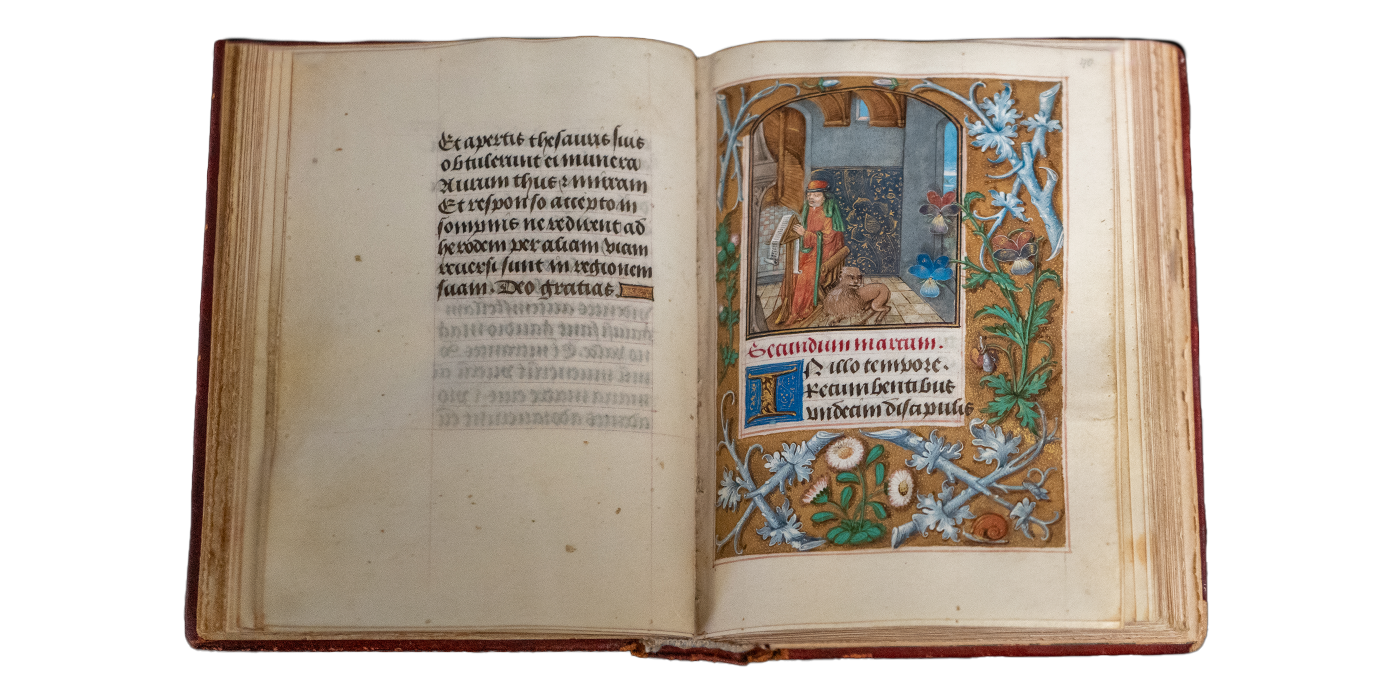 Et apertis thesauris suis
obtulerunt ei munera
Aurum thus ⁊ mirram
Et responso accepto in
sompnis ne redirent ad
herodem per aliam viam
reuersi sunt in regionem
suam. Deo gratias
40
Secundum marcum.
IN illo tempore.
Recumbentibus
vndecim discipulis